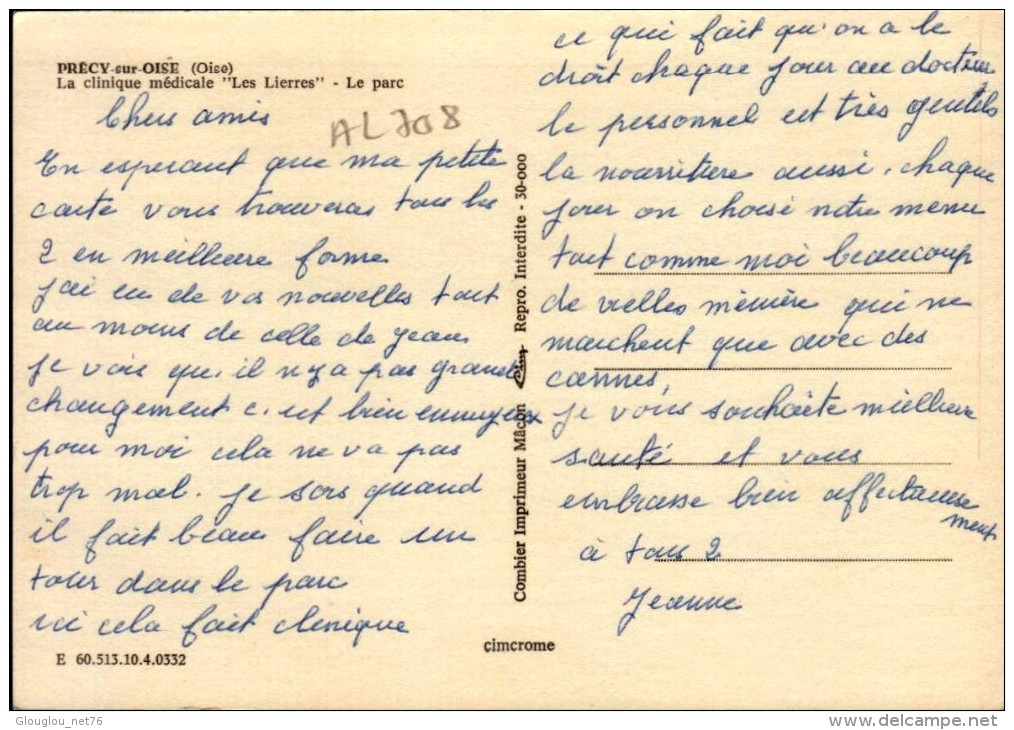 PRÉCY-sur-OISE (Oise)
La clinique médicale "Les Lierres" - Le parc
AL 708
Chers amis
En esperant que ma petite
carte vous trouveras tous les
2 en meilleure forme
j'ai eu de vos nouvelles tout
au moins de celle de Jean
je vois qu'il n'y a pas grand
changement c'est bien ennuyeux
pour moi cela ne va pas
trop mal. je sors quand
il fait beau faire un
tour dans le parc
ici cela fait clinique
E 60.513.10.4.0332
Combier Imprimeur Mâcon Repro. Interdite - 30-000
cimcrome
ce qui fait qu'on a le
droit chaque jour au docteur
le personnel est très gentils
la nourriture aussi. chaque
jour on choisi notre menu
tout comme moi beaucoup
de vielles mémère qui ne
marchent que avec des
cannes,
je vous souhaite meilleure
santé et vous
embrasse bien affectueuse
ment
à tous 2
Jeanne
Glouglou_net76
www.delcampe.net